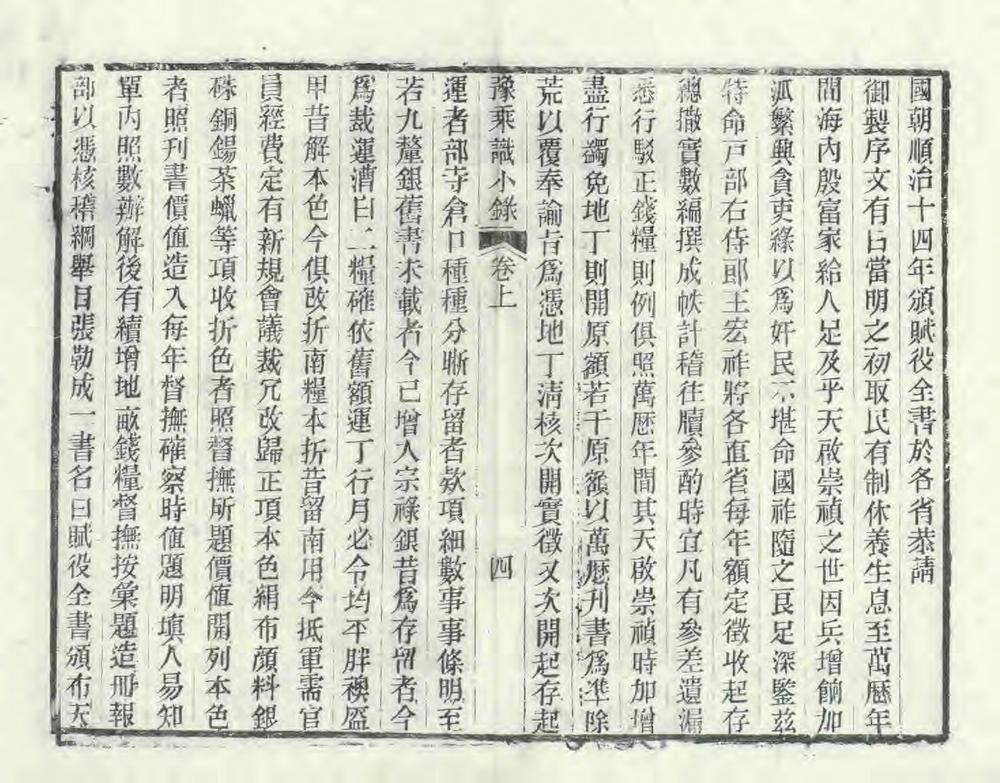 國朝順治十四年頒賦役全書於各省恭請
御製序文有曰當明之初取民有制休養生息至萬厯年
間海內殷富家給人足及乎天啟崇禎之世因兵增餉加
派繁興貪吏緣以為奸民不堪命國祚隨之良足深鑒茲
特命戸部右侍郎王宏祚將各直省每年額定徵收起存
總撒實數編撰成帙計稽往牘參酌時宜凡有參差遺漏
悉行駁正錢糧則例俱照萬厯年間其天啟崇禎時加增
盡行蠲免地丁則開原額若干原額以萬厯刋書為準除
荒以覆奉諭旨為憑地丁清核次開實徵又次開起存起
豫乘識小錄 卷上 四
運者部寺倉口種種分晣存留者欵項細數事事條明至
若九釐銀舊書未載者今已增入宗祿銀昔為存留者今
為裁運漕白二糧確依舊額運丁行月必令均平胖襖盔
甲昔解本色今俱改折南糧本折昔留南用今抵軍需官
員經費定有新規會議裁冗改歸正項本色絹布顏料銀
硃銅錫茶蠟等項收折色者照督撫所題價值開列本色
者照刋書價值造入每年督撫確察時值題明填入易知
單內照數辦解後有續增地畝錢糧督撫按彙題造冊報
部以憑核稽綱舉目張勒成一書名曰賦役全書頒布天